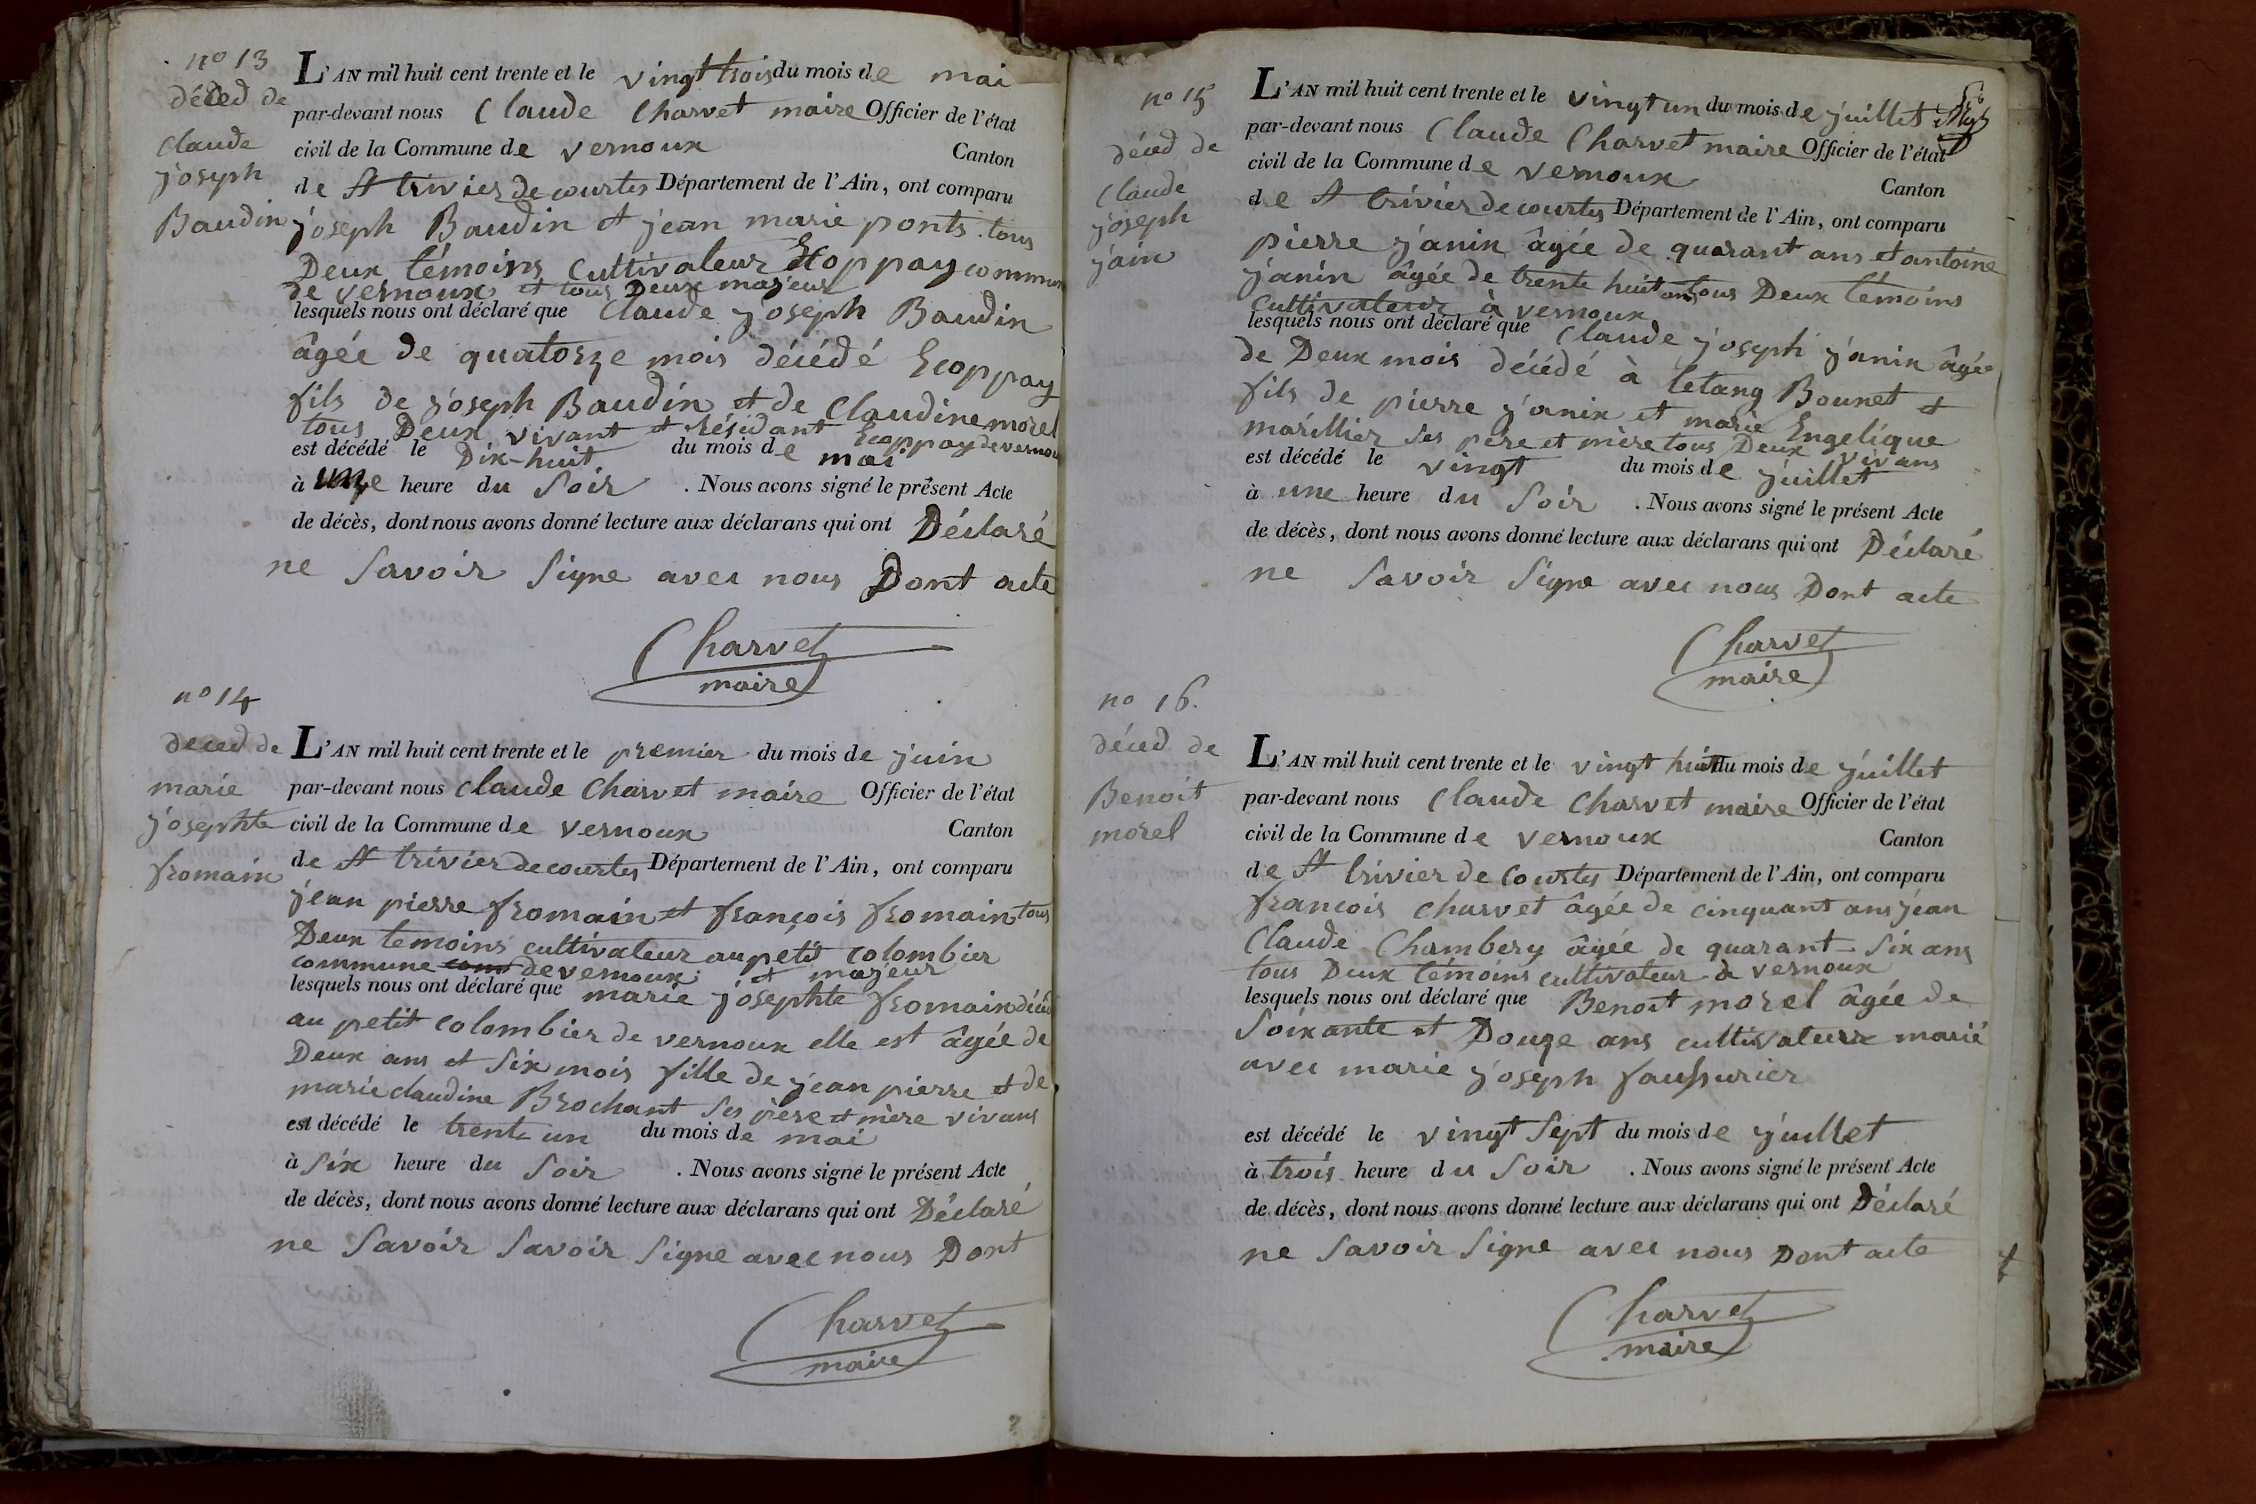 no 13
déced de
Claude
joseph
Baudin
L'AN mil huit cent trente et le vingt trois du mois de mai
par-devant nous Claude Charvet maire Officier de l'état
civil de la Commune de vernoux Canton
de St trivier de courtes Département de l'Ain, ont comparu
joseph Baudin et jean marie ponts tous
Deux témoins Cultivateur Ecoppay commune
de vernoux et tous Deux majeur
lesquels nous ont déclaré que Claude joseph Baudin
âgée de quatorze mois décédé Ecoppay
fils de joseph Baudin et de Claudine morel
tous Deux vivant et résidant Ecoppay de vernoux
est décédé le Dix-huit du mois de mai
à heure du Soir . Nous avons signé le présent Acte
de décès, dont nous avons donné lecture aux déclarans qui ont Déclaré
ne Savoir Signe avec nous Dont acte
Charvet
maire
no 14
deced de
marie
josephte
fromain
L'AN mil huit cent trente et le premier du mois de juin
par-devant nous Claude Charvet maire Officier de l'état
civil de la Commune de vernoux Canton
de St trivier de courtes Département de l'Ain, ont comparu
jean pierre fromain et françois fromain tous
Deux temoins cultivateur au petit colombier
commune com de vernoux et majeur
lesquels nous ont déclaré que marie josephte fromain décéd
au petit colombier de vernoux elle est âgée de
Deux ans et Six mois fille de jean pierre et de
marie claudine Brochant Ses père et mère vivans
est décédé le trente un du mois de mai
à Six heure du Soir . Nous avons signé le présent Acte
de décès, dont nous avons donné lecture aux déclarans qui ont Déclaré
ne Savoir Savoir Signe avec nous Dont
Charvet
maire
no 15
déced de
Claude
joseph
jain
L'AN mil huit cent trente et le vingt un du mois de juillet
par-devant nous Claude Charvet maire Officier de l'état
civil de la Commune de vernoux Canton
de St trivier de courtes Département de l'Ain, ont comparu
pierre janin âgée de quarant ans et antoine
janin âgée de trente huit ans tous Deux témoins
Cultivateur à vernoux
lesquels nous ont déclaré que Claude joseph janin âgée
de Deux mois décédé à letang Bounet et
fils de pierre janin et marie Engelique
marillier Ses père et mère tous Deux vivans
est décédé le vingt du mois de juillet
à une heure du Soir . Nous avons signé le présent Acte
de décès, dont nous avons donné lecture aux déclarans qui ont Déclaré
ne Savoir Signe avec nous Dont acte
Charvet
maire
no 16.
déced de
Benoit
morel
L'AN mil huit cent trente et le vingt huit du mois de juillet
par-devant nous Claude Charvet maire Officier de l'état
civil de la Commune de vernoux Canton
de St trivier de Courtes Département de l'Ain, ont comparu
françois charvet âgée de cinquant ans jean
Claude Chambery âgée de quarant Six ans
tous Deux témoins cultivateur à vernoux
lesquels nous ont déclaré que Benoit morel âgée de
Soixante et Douze ans cultivateur marié
avec marie joseph faussurier
est décédé le vingt Sept du mois de juillet
à trois heure du Soir . Nous avons signé le présent Acte
de décès, dont nous avons donné lecture aux déclarans qui ont Déclaré
ne Savoir Signe avec nous Dont acte
Charvet
maire